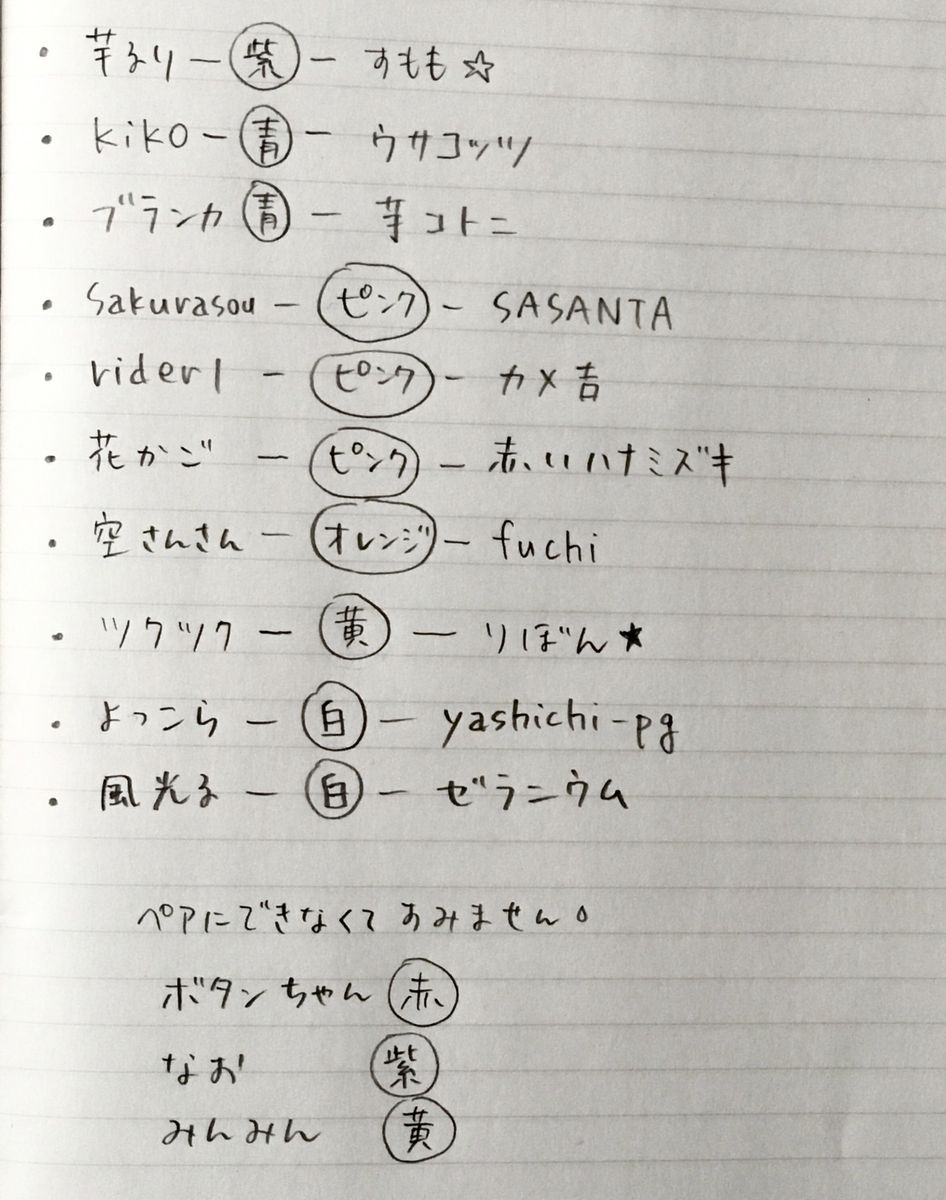 ・ 芋るり ― 紫 ― すもも☆
・ kiko ― 青 ― ウサコッツ
・ ブランカ 青 ― 芋コトニ
・ Sakurasou ― ピンク ― SASANTA
・ rider1 ― ピンク ― カメ吉
・ 花かご ― ピンク ― 赤いハナミズキ
・ 空さんさん ― オレンジ ― fuchi
・ ツクツク ― 黄 ― りぼん★
・ よっこら ― 白 ― yashichi-pg
・ 風光る ― 白 ― ゼラニウム
ペアにできなくてすみません。
ボタンちゃん 赤
なお 紫
みんみん 黄